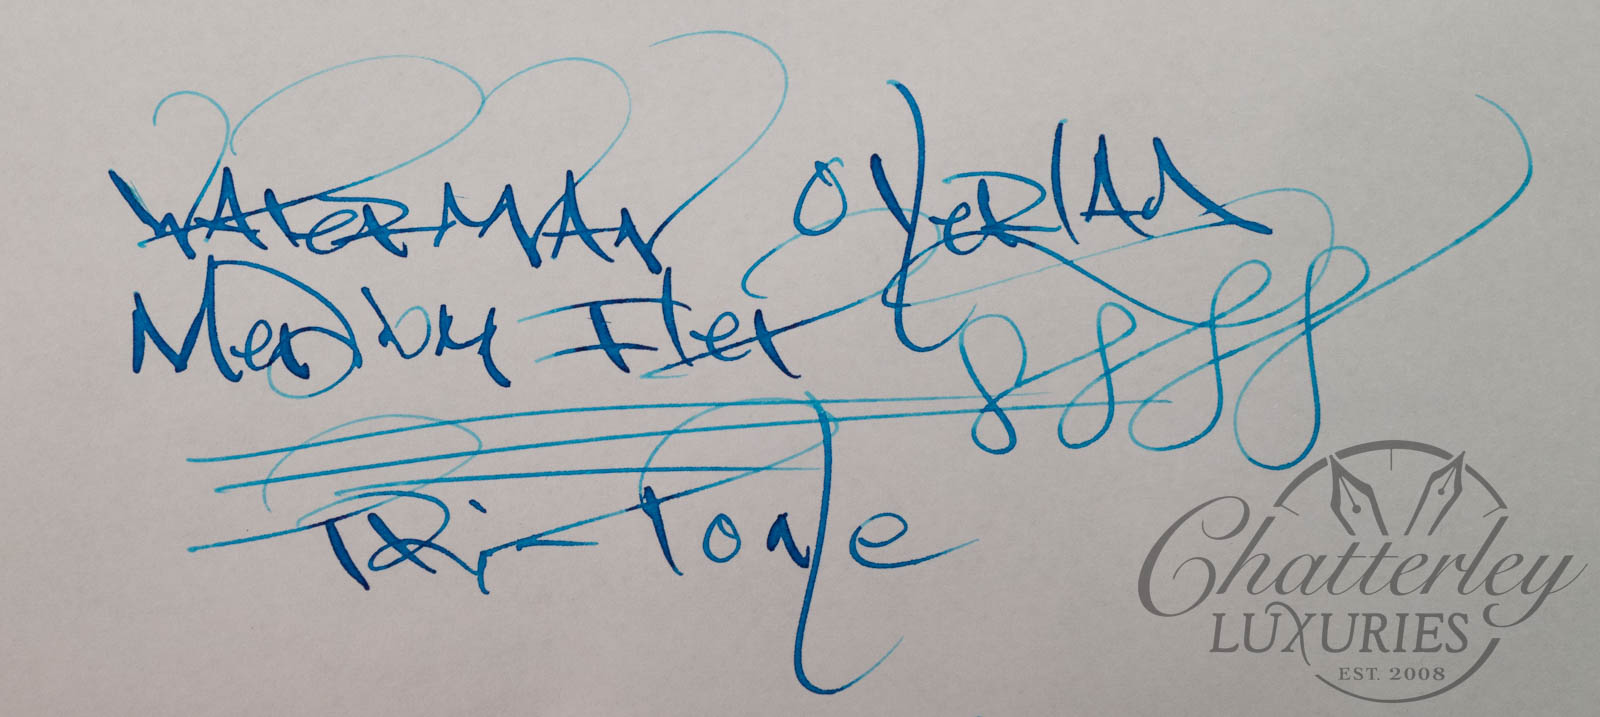 Waterman Overlay
Medium Flex
Tri-Tone
Chatterley
LUXURIES
EST. 2008